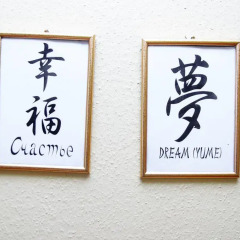 幸
福
Счастье
夢
DREAM (YUME)